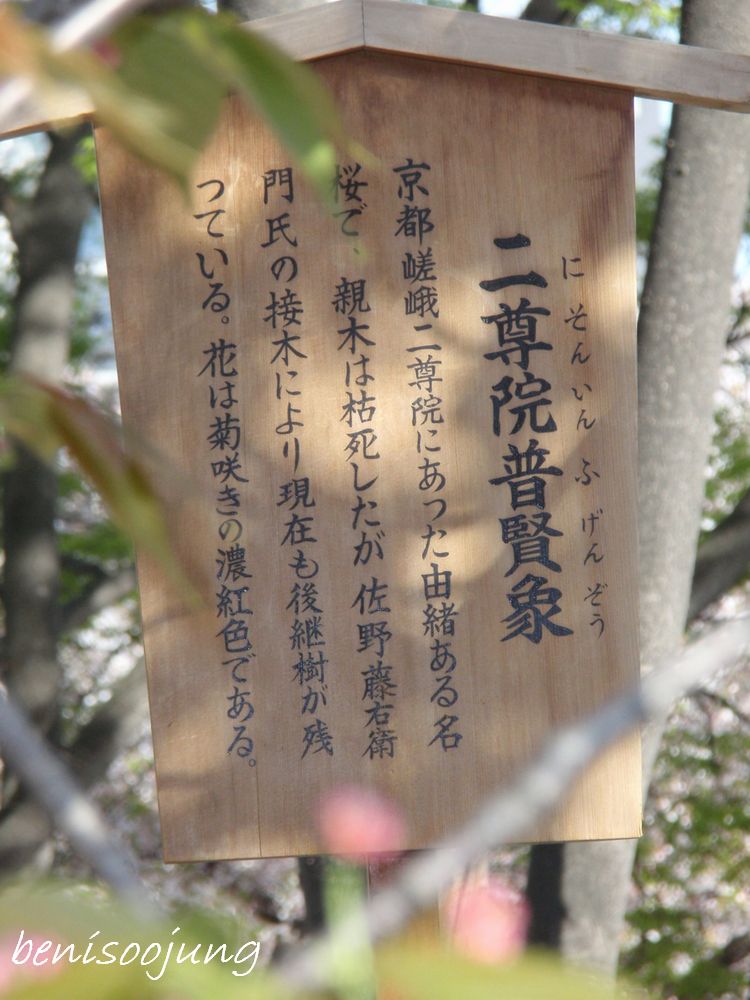 にそんいんふげんぞう
二尊院普賢象
京都嵯峨二尊院にあった由緒ある名
桜で、親木は枯死したが佐野藤右衛
門氏の接木により現在も後継樹が残
っている。花は菊咲きの濃紅色である。
benisoojung